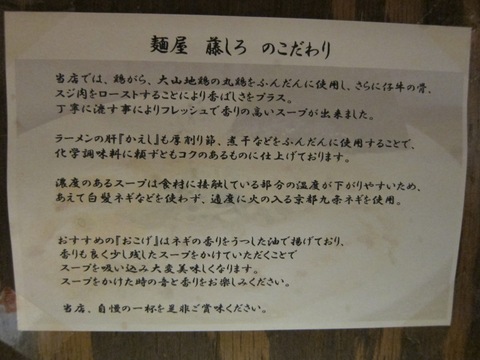 麺屋 藤しろ のこだわり
当店では、鶏がら、大山地鶏の丸鶏をふんだんに使用し、さらに仔牛の骨、
スジ肉をローストすることにより香ばしさをプラス。
丁寧に漉す事によりフレッシュで香りの高いスープが出来ました。
ラーメンの肝『かえし』も厚削り節、煮干などをふんだんに使用することで、
化学調味料に頼ずともコクのあるものに仕上げております。
濃度のあるスープは食材に接触している部分の温度が下がりやすいため、
あえて白髪ネギなどを使わず、適度に火の入る京都九条ネギを使用。
おすすめの『おこげ』はネギの香りをうつした油で揚げており、
香りも良く少し残したスープをかけていただくことで
スープを吸い込み大変美味しくなります。
スープをかけた時の音と香りをお楽しみください。
当店、自慢の一杯を是非ご賞味ください。